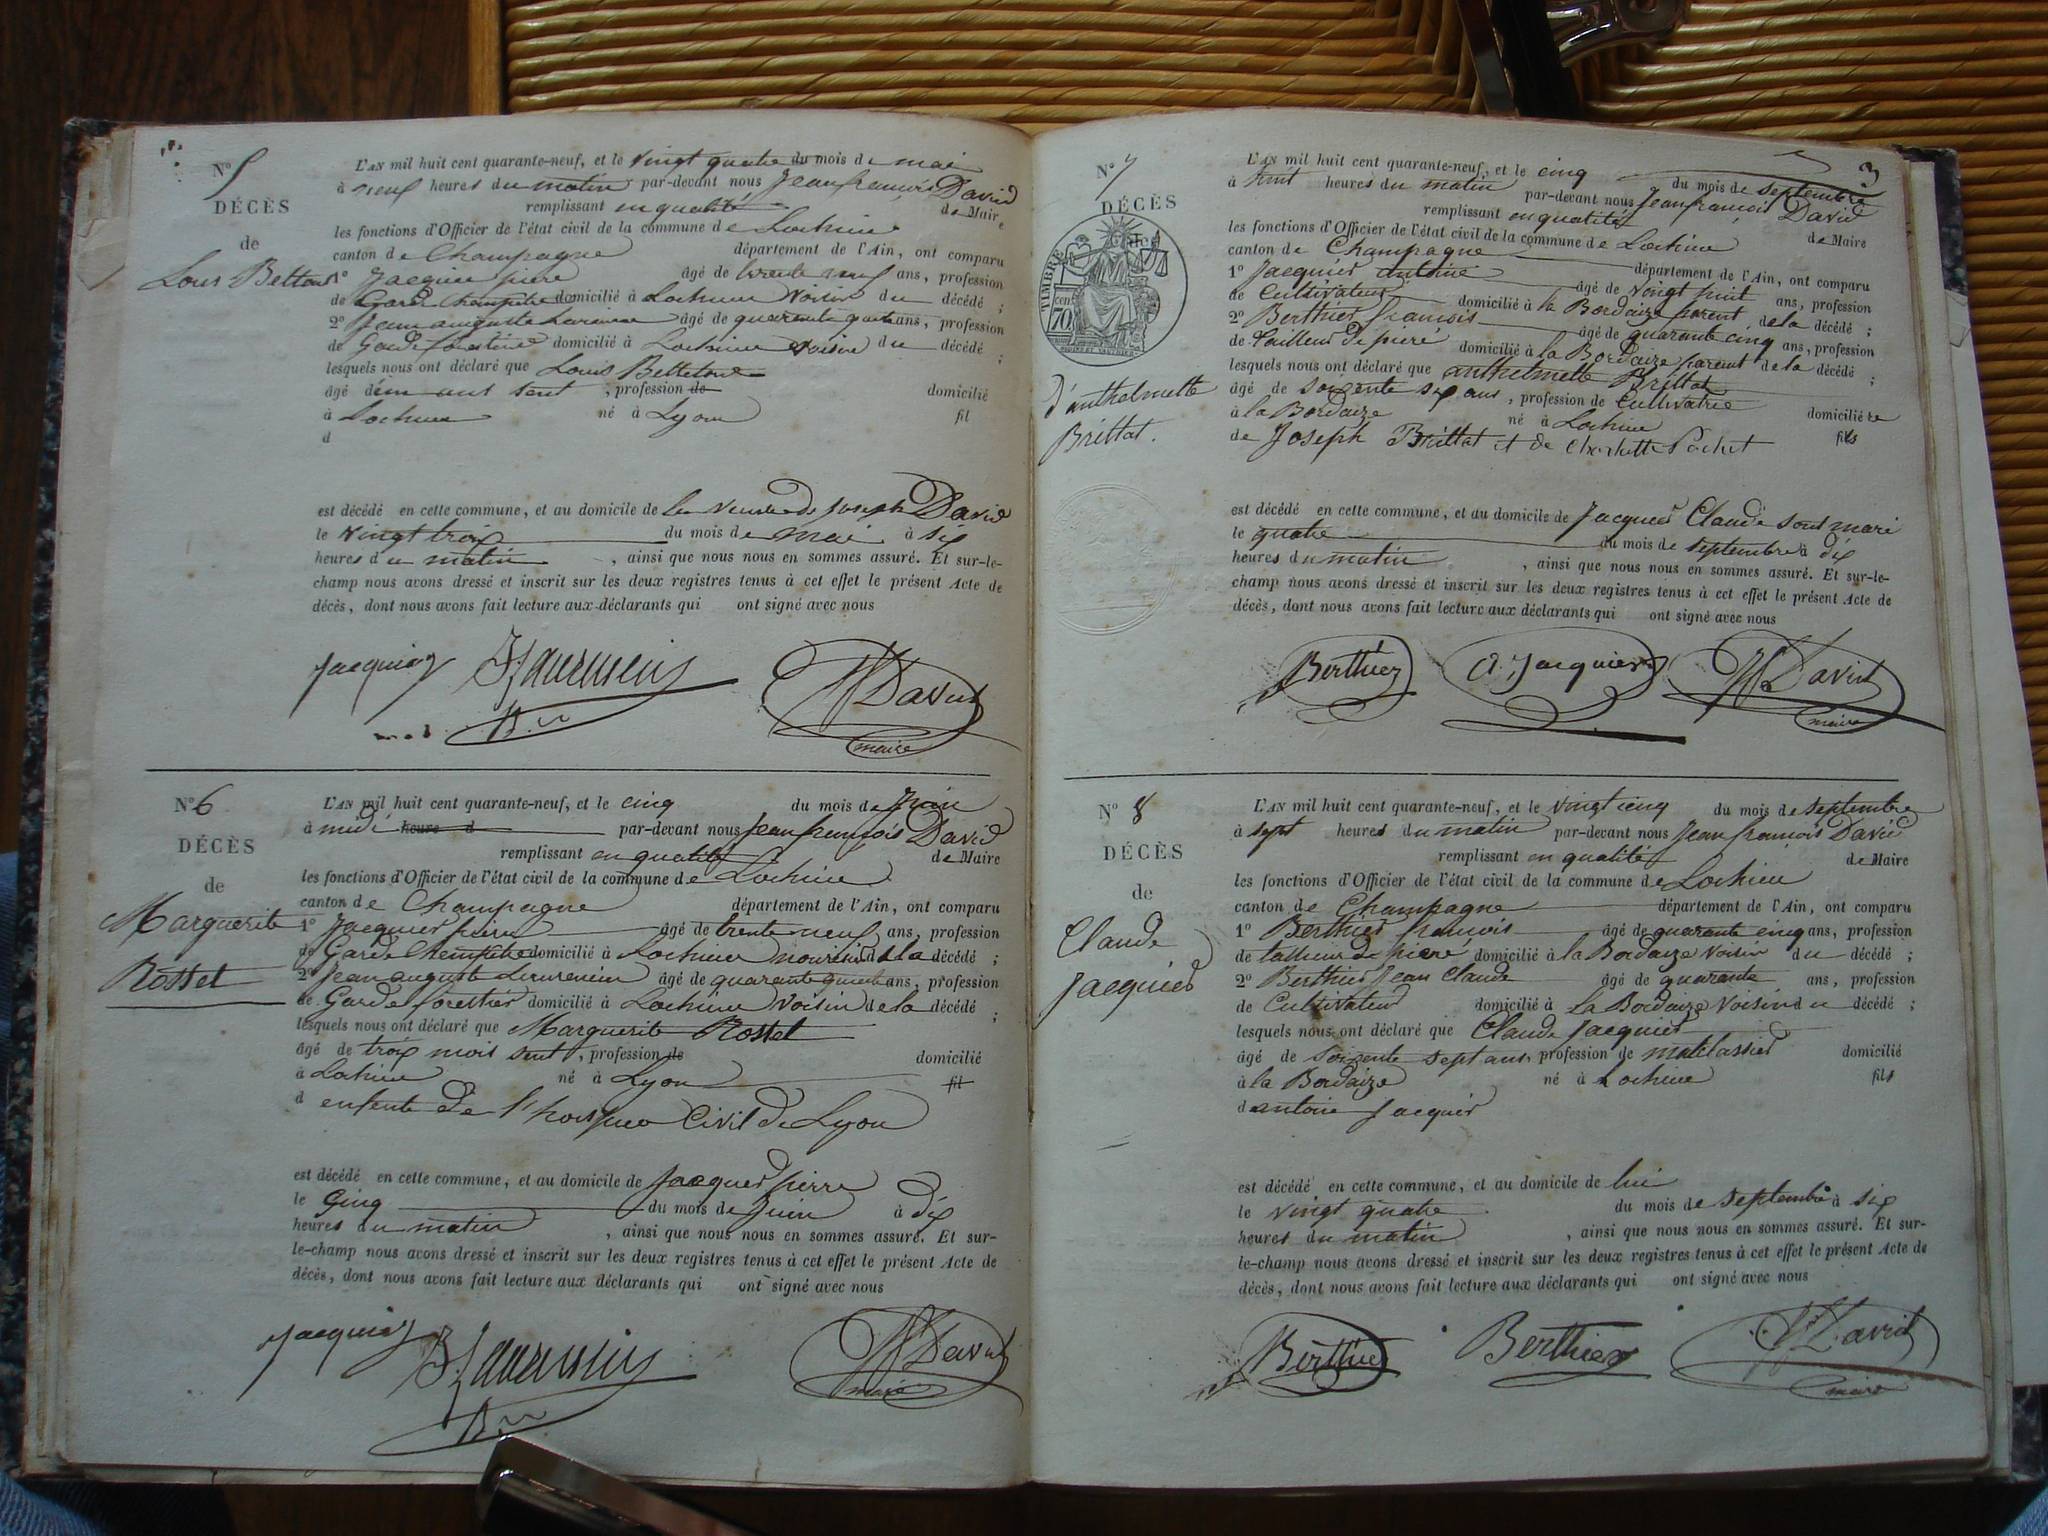 N° 5
DÉCÈS
de
Louis Bettou
L'AN mil huit cent quarante-neuf, et le vingt quatre du mois de mai
à neuf heures du matin par-devant nous Jean françois David
remplissant en qualité de Maire
les fonctions d'Officier de l'état civil de la commune de Lochieu
canton de Champagne département de l'Ain, ont comparu
1° Jacquier pierre âgé de trente neuf ans, profession
de Garde Champêtre domicilié à Lochieu voisin du décédé ;
2° Jean auguste âgé de quarante quatre ans, profession
de Garde forestier domicilié à Lochieu voisin du décédé ;
lesquels nous ont déclaré que Louis
âgé d'un ans sent, profession de domicilié
à Lochieu né à Lyon fil
d
est décédé en cette commune, et au domicile de la veuve de Joseph David
le vingt trois du mois de mai à six
heures du matin, ainsi que nous nous en sommes assuré. Et sur-le-
champ nous avons dressé et inscrit sur les deux registres tenus à cet effet le présent Acte de
décès, dont nous avons fait lecture aux déclarants qui ont signé avec nous
Jacquier David
maire
N° 6
DÉCÈS
de
Marguerite
Rosset
L'AN mil huit cent quarante-neuf, et le cinq du mois de Juin
à midi heure d par-devant nous Jean françois David
remplissant en qualité de Maire
les fonctions d'Officier de l'état civil de la commune de Lochieu
canton de Champagne département de l'Ain, ont comparu
1° Jacquier pierre âgé de trente neuf ans, profession
de Garde Champêtre domicilié à Lochieu de la décédé ;
2° Jean auguste âgé de quarante ans, profession
de Garde forestier domicilié à Lochieu voisin de la décédé ;
lesquels nous ont déclaré que Marguerite Rosset
âgé de trois mois sent, profession de domicilié
à Lochieu né à Lyon fil
d enfente de l' Civil de Lyon
est décédé en cette commune, et au domicile de Jacquier pierre
le Cinq du mois de Juin à dix
heures du matin, ainsi que nous nous en sommes assuré. Et sur-
le-champ nous avons dressé et inscrit sur les deux registres tenus à cet effet le présent Acte de
décès, dont nous avons fait lecture aux déclarants qui ont signé avec nous
Jacquier David
maire
3
N° 7
DÉCÈS
TIMBRE
cen
70
d'anthelmette
Brittat.
L'AN mil huit cent quarante-neuf, et le cinq du mois de septembre
à huit heures du matin par-devant nous Jean françois David
remplissant en qualité de Maire
les fonctions d'Officier de l'état civil de la commune de Lochieu
canton de Champagne département de l'Ain, ont comparu
1° Jacquier antoine âgé de vingt huit ans, profession
de Cultivateur domicilié à la Bordaize parent de la décédé ;
2° Berthier françois âgé de quarante cinq ans, profession
de tailleur de piere domicilié à la Bordaize parent de la décédé ;
lesquels nous ont déclaré que anthelmette Brittat
âgé de soixente six ans, profession de Cultivatrie domicilié re
à la Bordaize né à Lochieu fils
de Joseph Brittat et de Charlotte Pochet
est décédé en cette commune, et au domicile de Jacquier Claude sont mari
le quatre du mois de septembre à dix
heures du matin, ainsi que nous nous en sommes assuré. Et sur-le-
champ nous avons dressé et inscrit sur les deux registres tenus à cet effet le présent Acte de
décès, dont nous avons fait lecture aux déclarants qui ont signé avec nous
Berthier A. Jacquier David
maire
N° 8
DÉCÈS
de
Claude
Jacquier
L'AN mil huit cent quarante-neuf, et le vingt cinq du mois de septembre
à sept heures du matin par-devant nous Jean françois David
remplissant en qualité de Maire
les fonctions d'Officier de l'état civil de la commune de Lochieu
canton de Champagne département de l'Ain, ont comparu
1° Berthier françois âgé de quarante cinq ans, profession
de tailleur de piere domicilié à la Bordaize voisin du décédé ;
2° Berthier Jean Claude âgé de quarante ans, profession
de Cultivateur domicilié à La Bordaize voisin du décédé ;
lesquels nous ont déclaré que Claude Jacquier
âgé de soixente sept ans, profession de matelassier domicilié
à la Bordaize né à Lochieu fils
d antoine Jacquier
est décédé en cette commune, et au domicile de lui
le vingt quatre du mois de septembre à six
heures du matin, ainsi que nous nous en sommes assuré. Et sur-
le-champ nous avons dressé et inscrit sur les deux registres tenus à cet effet le présent Acte de
décès, dont nous avons fait lecture aux déclarants qui ont signé avec nous
Berthier Berthier David
maire